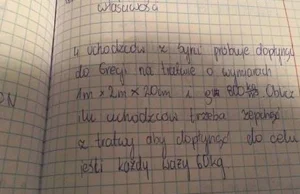 własności
4 uchodźców z Syrii próbuje dopłynąć
do Grecji na tratwie o wymiarach
1m × 2m × 20cm i 800 Oblicz
ilu uchodźców trzeba zepchnąć
z tratwy aby dopłynąć do celu
jeśli każdy waży 60kg